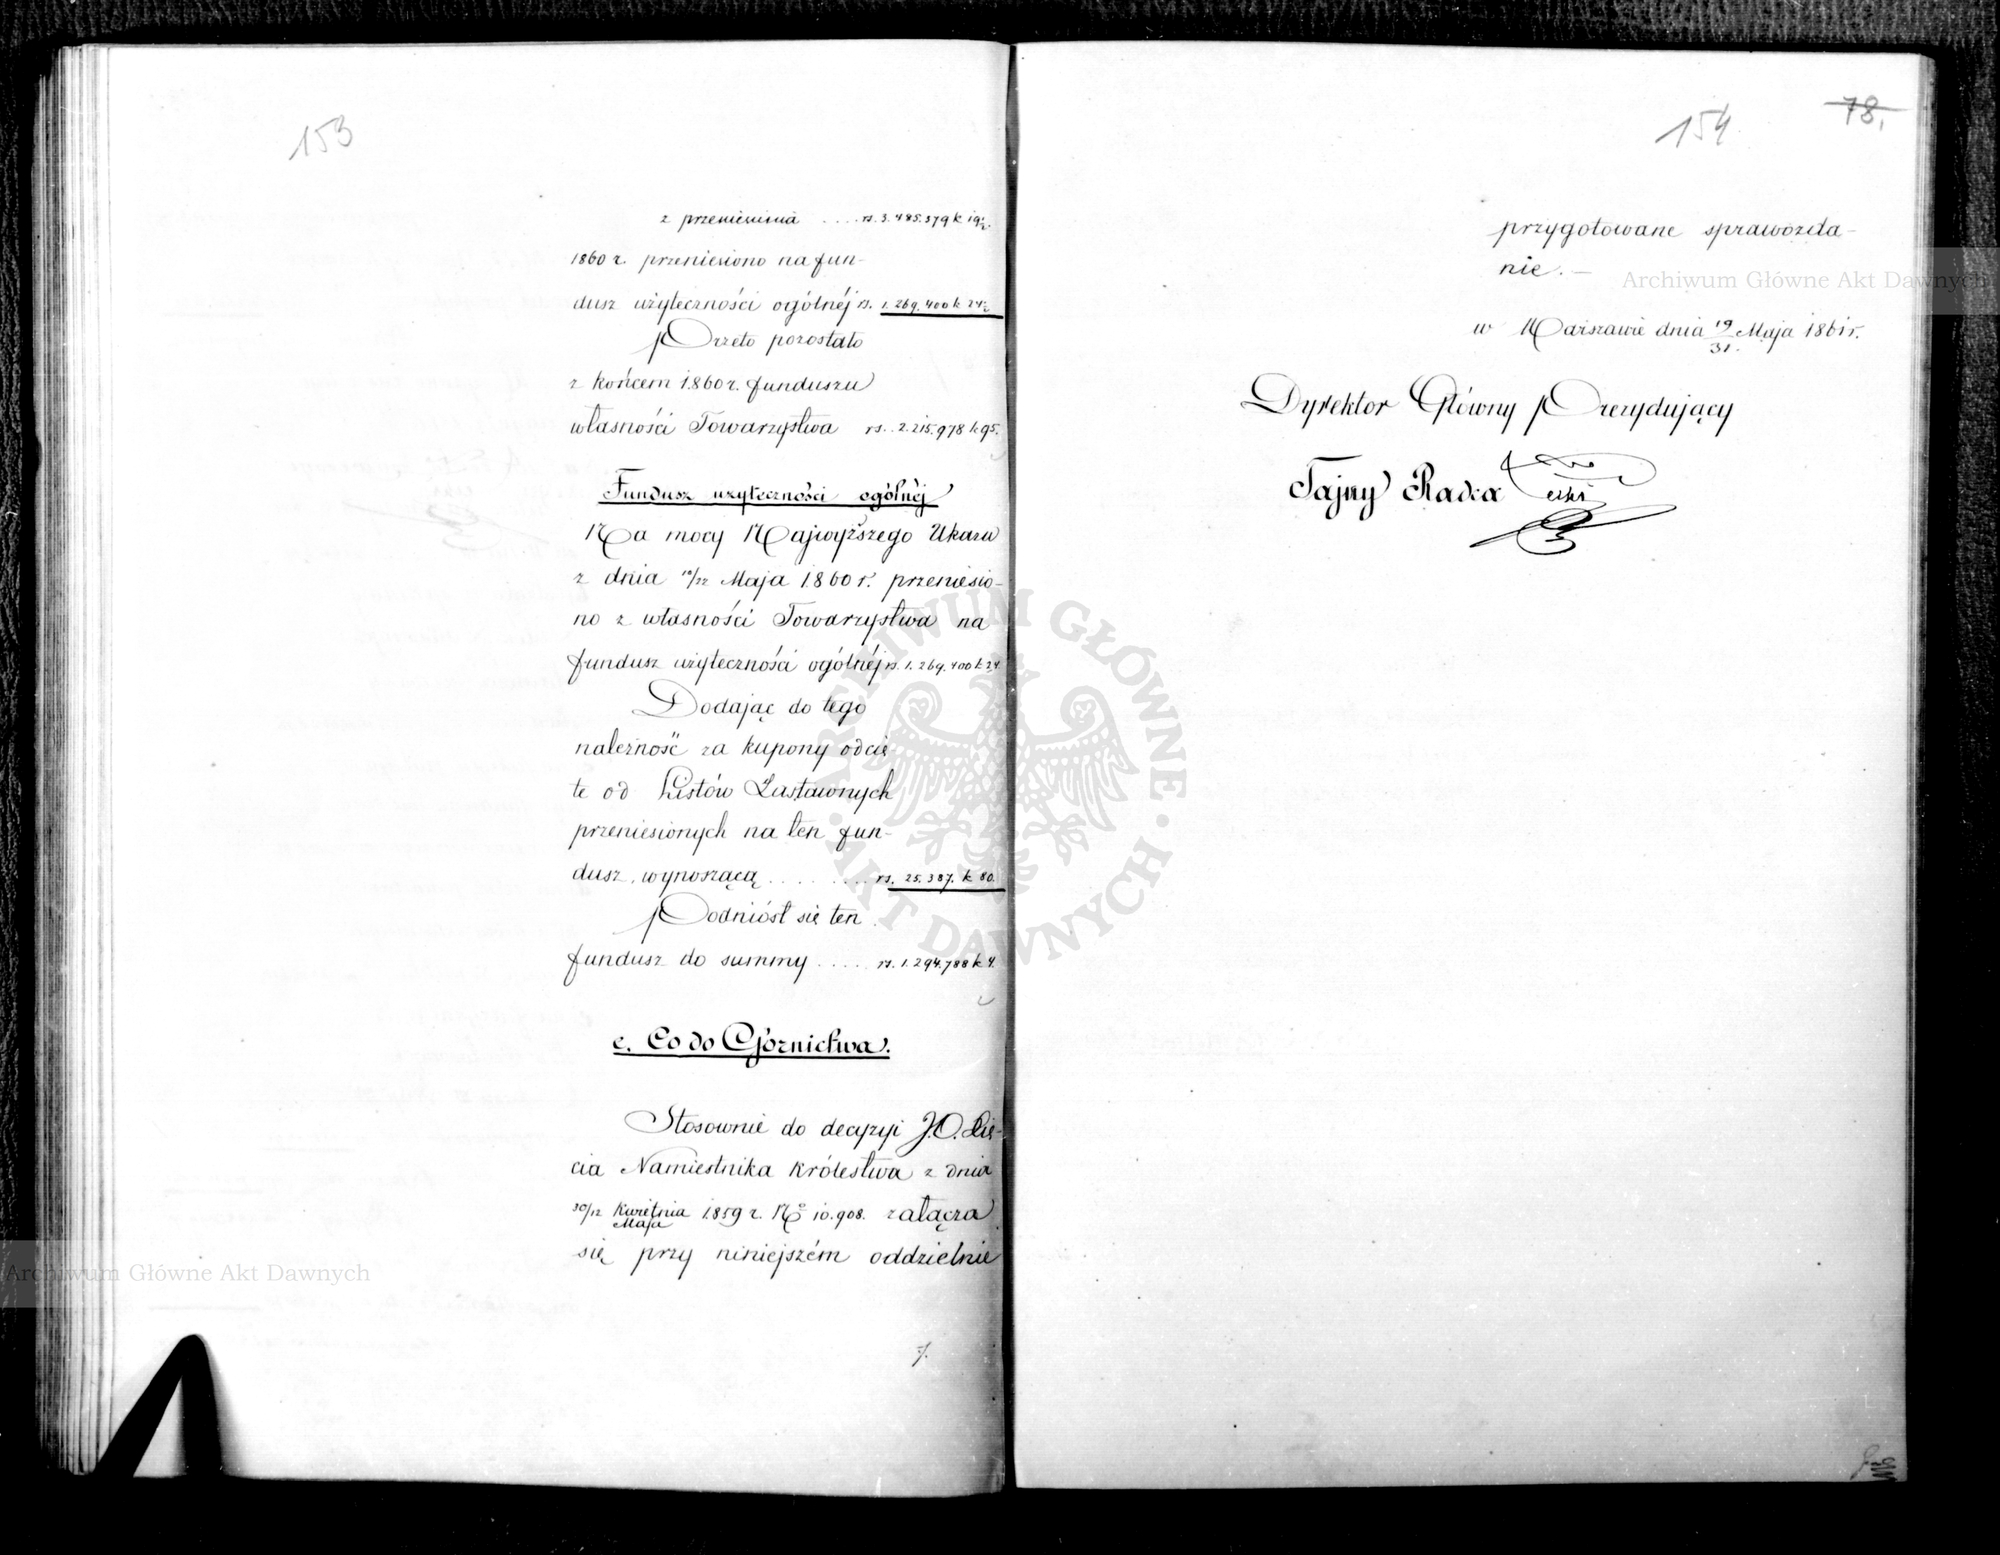 153
z przeniesienia .... rs. 3.485.379 k 19½.
1860 r. przeniesiono na fun-
dusz użyteczności ogólnéj rs. 1.269.400 k 24½
Przeto pozostało
z końcem 1860 r. funduszu
własności Towarzystwa rs. 2.215.978 k 95.
Fundusz użyteczności ogólnéj
Na mocy Najwyższego Ukazu
z dnia 10/22 Maja 1860 r. przeniesio-
no z własności Towarzystwa na
fundusz użyteczności ogólnéj rs. 1.269.400 k 24
Dodając do tego
należność za kupony odcię
te od Listów Zastawnych
przeniesionych na ten fun-
dusz, wynoszącą ........ rs. 25.387. k 80.
Podniósł się ten
fundusz do summy .... rs. 1.294.788 k 4.
e. Co do Górnictwa.
Stosownie do decyzyi J.O. Xię-
cia Namiestnika Królestwa z dnia
30/12 Kwietnia/Maja 1859 r. No 10.908. załącza
się przy niniejszém oddzielnie
/.
154
78.
przygotowane sprawozda-
nie. —
w Warszawie dnia 19/31. Maja 1861 r.
Dyrektor Główny Prezydujący
Tajny Radca
Archiwum Główne Akt Dawnych
Archiwum Główne Akt Dawnych
ARCHIWUM GŁÓWNE
AKT DAWNYCH